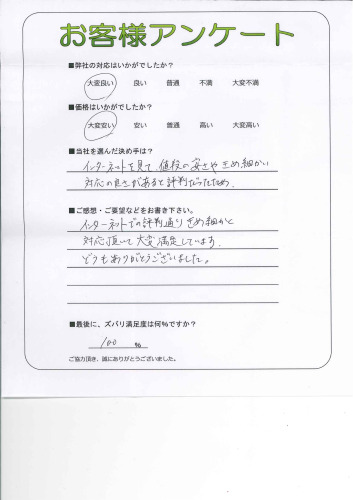 お客様アンケート
■弊社の対応はいかがでしたか?
大変良い 良い 普通 不満 大変不満
■価格はいかがでしたか?
大変安い 安い 普通 高い 大変高い
■当社を選んだ決め手は?
インターネットを見て、値段の安さやきめ細かい
対応の良さがあると評判だったため。
■ご感想・ご要望などをお書き下さい。
インターネットでの評判通りきめ細かく
対応頂いて大変満足しています。
どうもありがとうございました。
■最後に、ズバリ満足度は何%ですか?
100 %
ご協力頂き、誠にありがとうございました。